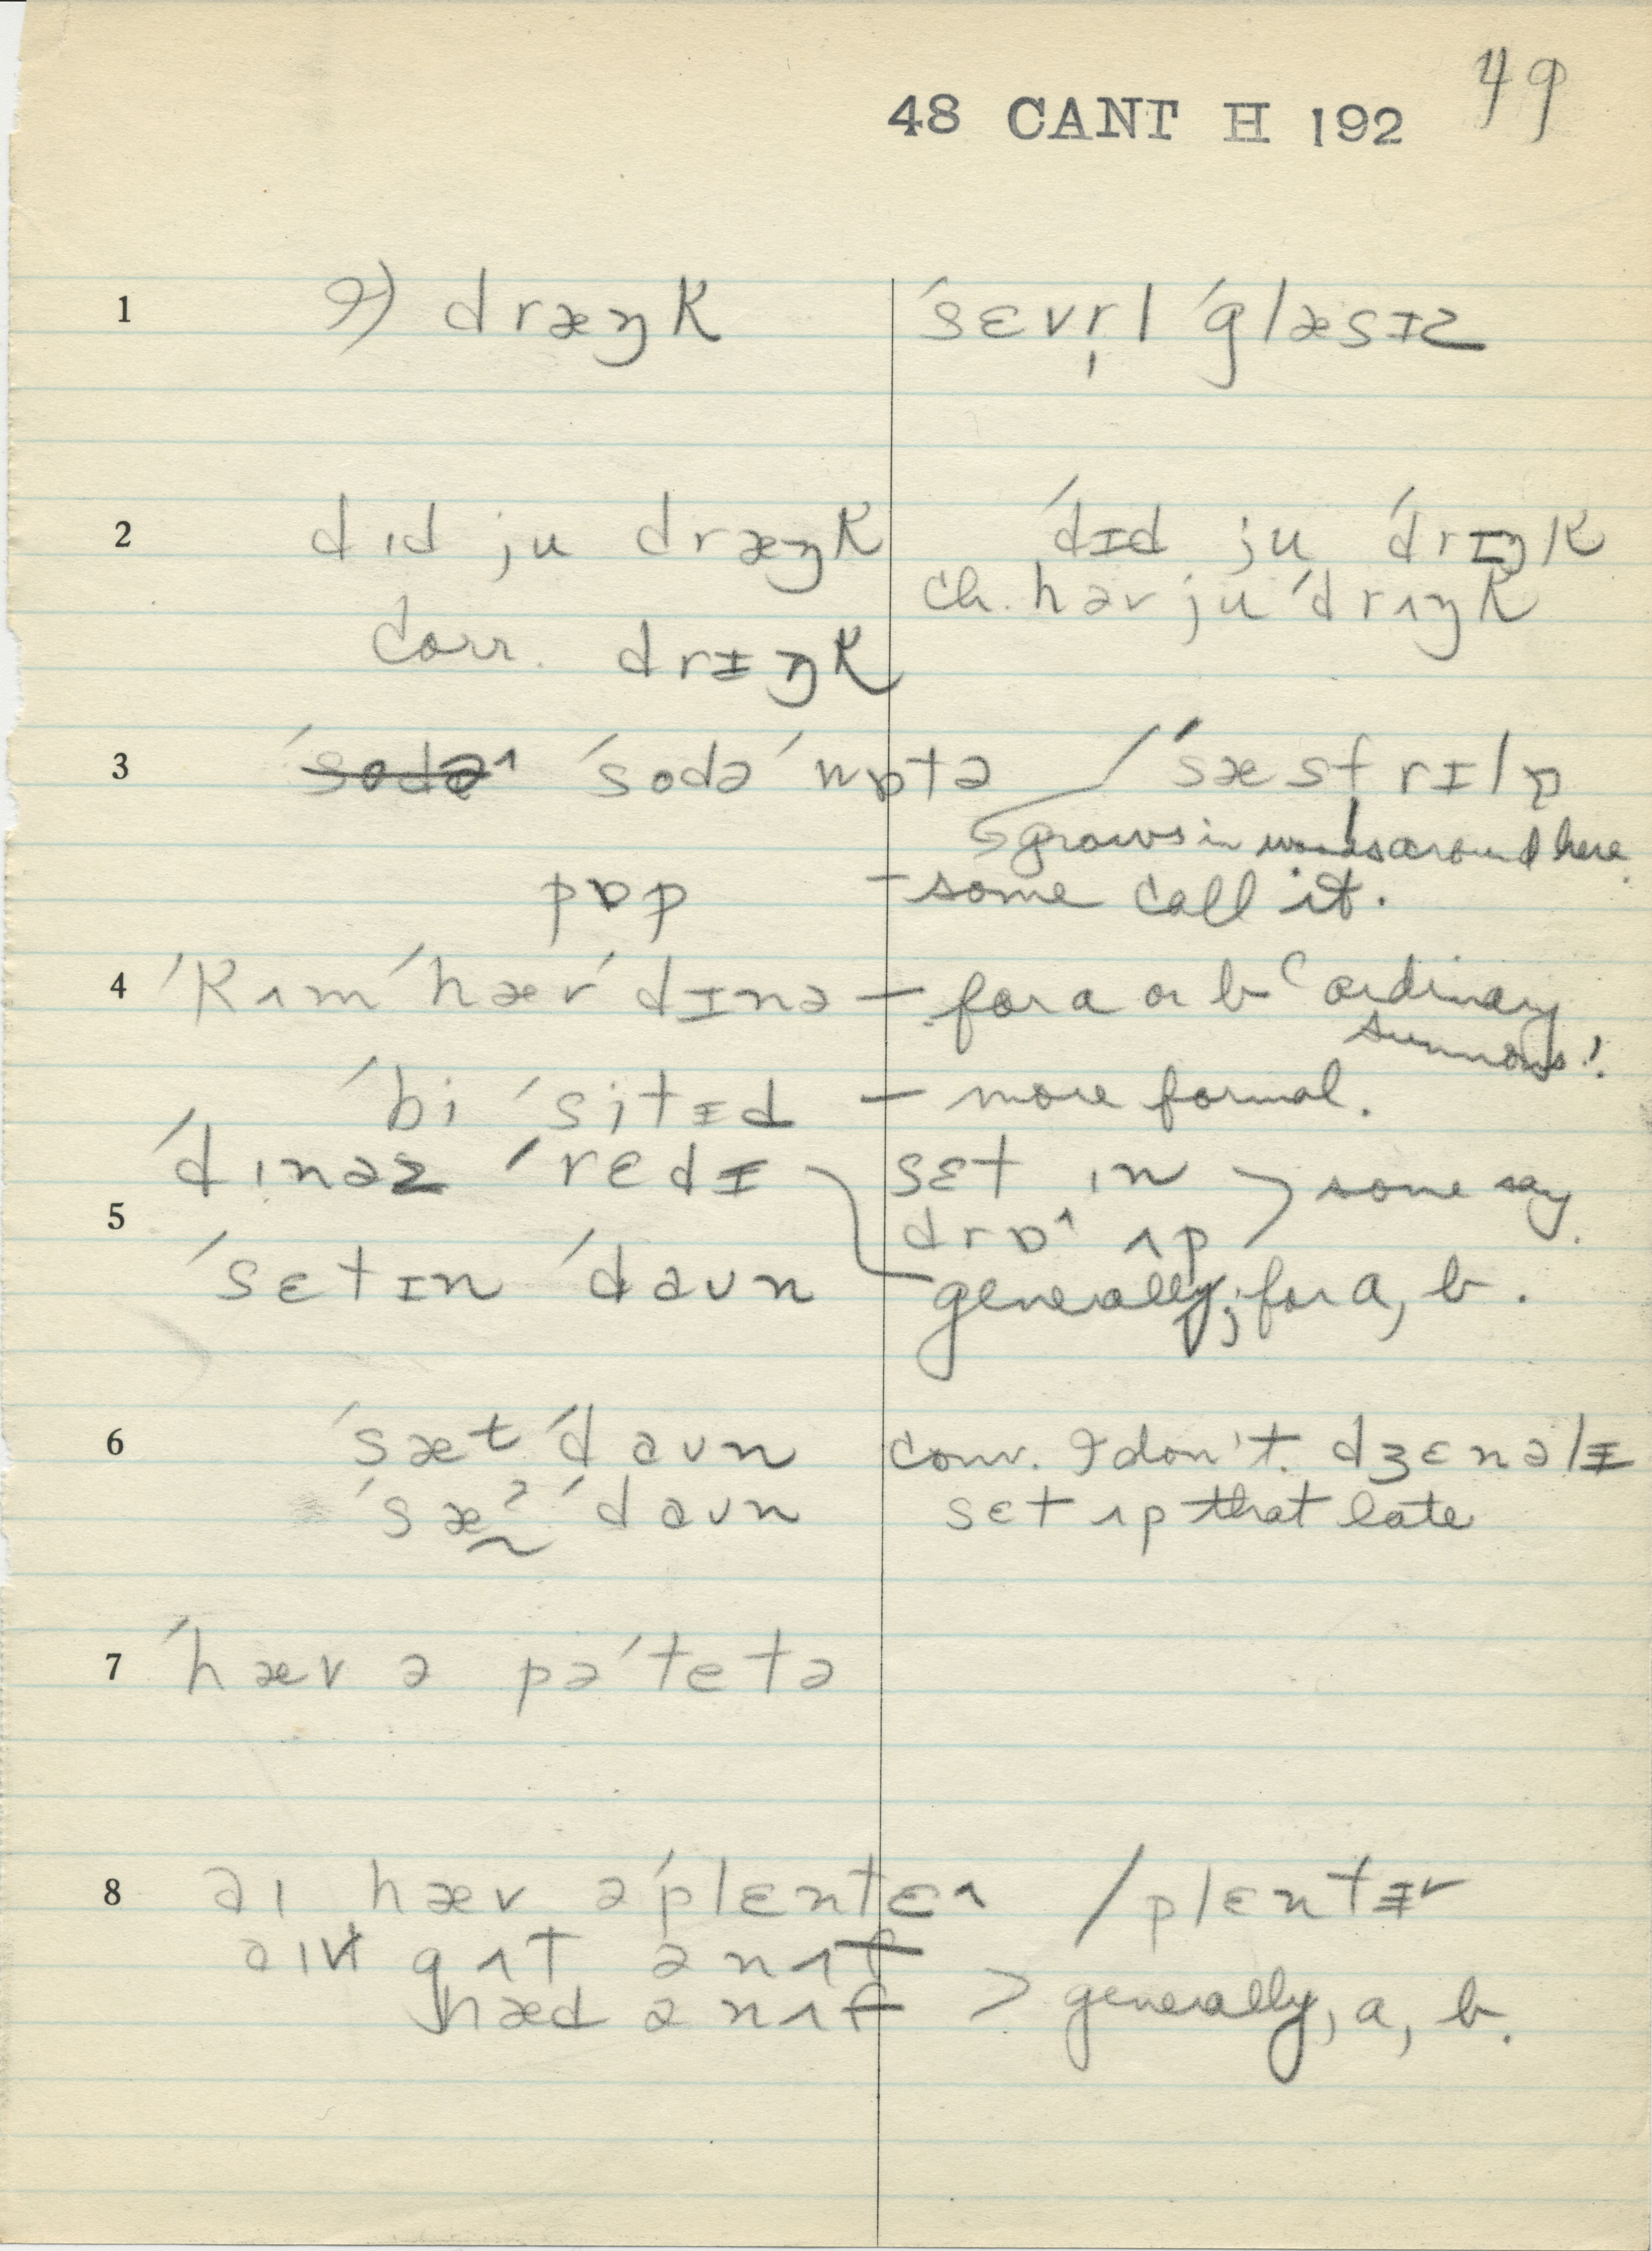 48 CANT H 192 49
1 I) dræŋk ˈsɛvr̩l ˈglæsɪz
2 dɪd ju dræŋk ˈdɪd ju ˈdrɪŋk
ch. həv ju ˈdrʌŋk
corr. drɪŋk
3 ˈsodə ˈwɒtə / ˈsæsfrɪlɒ
grows in woods around here.
pɒp – some call it.
4 ˈkʌm ˈhæv ˈdɪnə – for a or b (ordinary summons!
ˈbi ˈsitɪd – more formal.
ˈdɪnəz ˈrɛdɪ sɛt ɪn > some say.
5 drɒ ʌp
ˈsɛtɪn ˈdaʊn generally; for a, b.
6 ˈsæt ˈdaʊn conv. I don't dʒɛnəlɪ
ˈsæʔ ˈdaʊn sɛt ʌp that late
7 ˈhæv ə pəˈtetə
8 aɪ hæv əˈplɛntɛ / plɛntɪ
aɪv gʌt ənʌf
hæd ənʌf > generally, a, b.